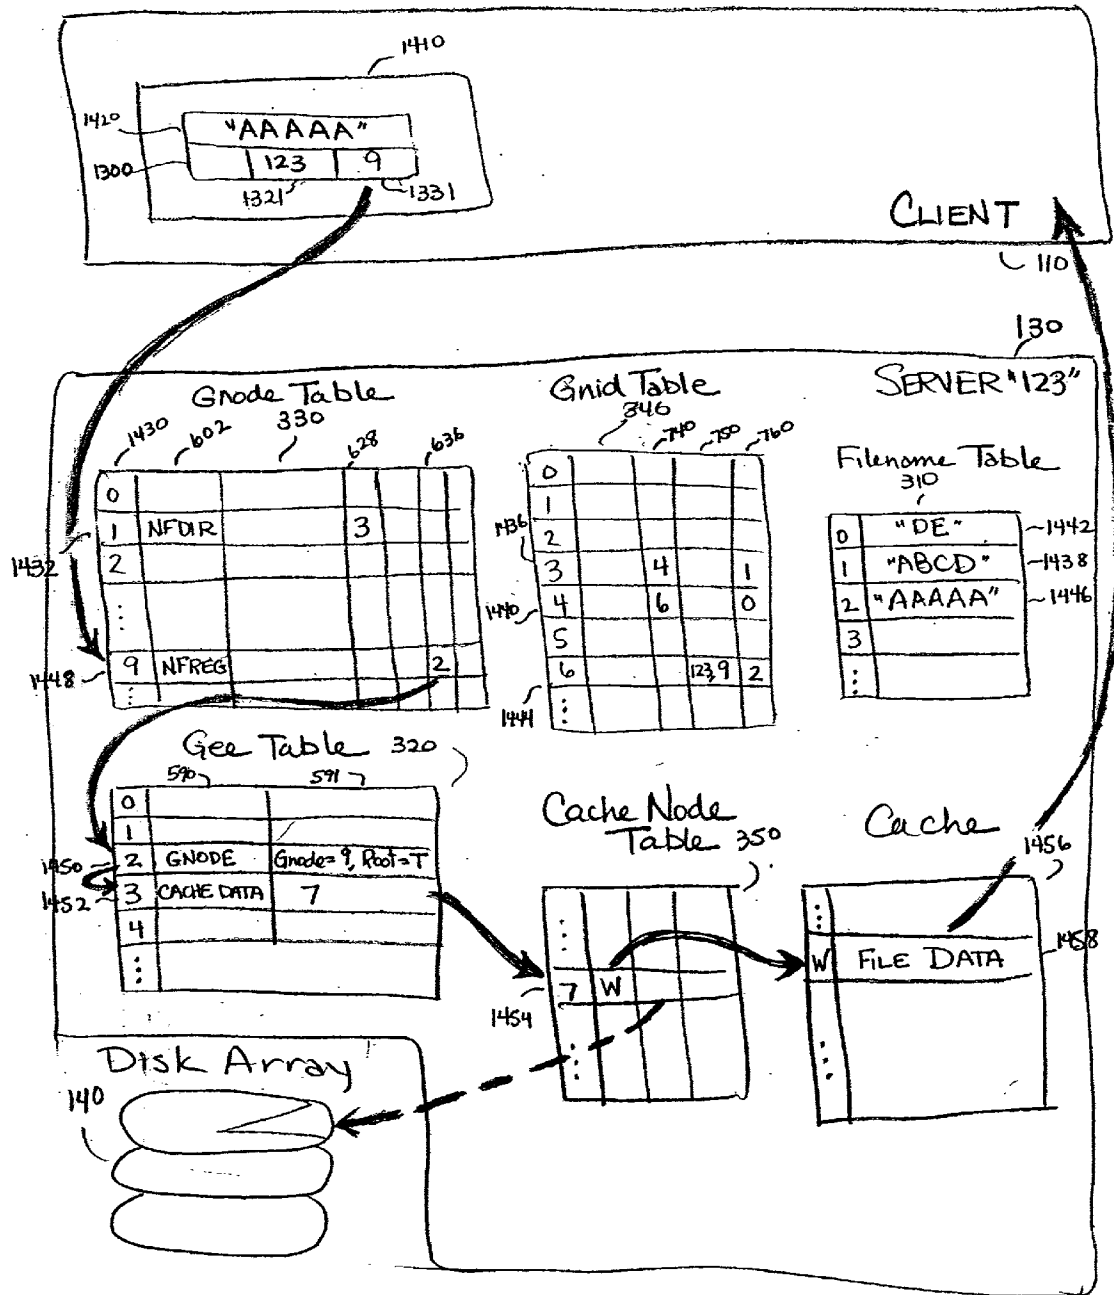 1410
1420
"AAAAA"
1300
123 9
1321 1331
CLIENT
110
130
SERVER "123"
Gnode Table
1430 602 330 628 636
0
1 NFDIR 3
1432
2
⋮
9 NFREG 2
1448
⋮
Gnid Table
340 740 750 760
0
1
1436
2
3 4 1
4 6 0
1440
5
6 123,9 2
1444
⋮
Filename Table
310
0 "DE" 1442
1 "ABCD" 1438
2 "AAAAA" 1446
3
⋮
Gee Table 320
590 591
0
1
1450 2 GNODE Gnode=9, Root=T
1452 3 CACHE DATA 7
4
⋮
Cache Node
Table 350
⋮
7 W
1454
⋮
Cache
1456
⋮
W FILE DATA 1458
⋮
Disk Array
140